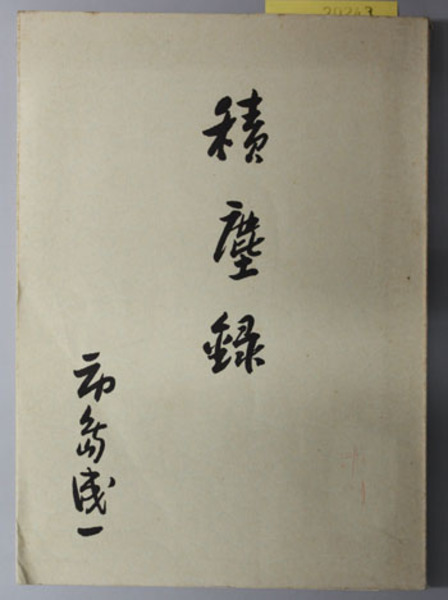 20243
積塵録
市島成一